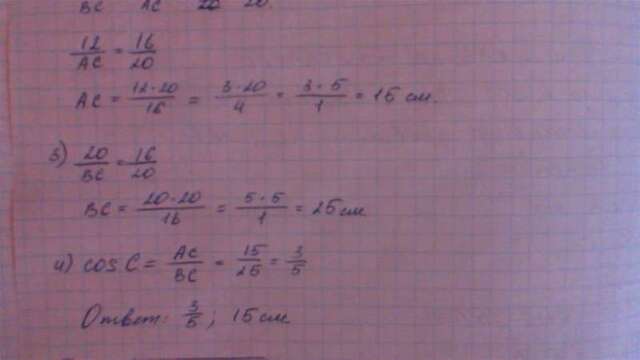 BC AC 20 20
12/AC = 16/20
AC = 12·20/16 = 3·20/4 = 3·5/1 = 15 см.
3) 20/BC = 16/20
BC = 20·20/16 = 5·5/1 = 25 см
4) cos C = AC/BC = 15/25 = 3/5
Ответ: 3/5; 15 см